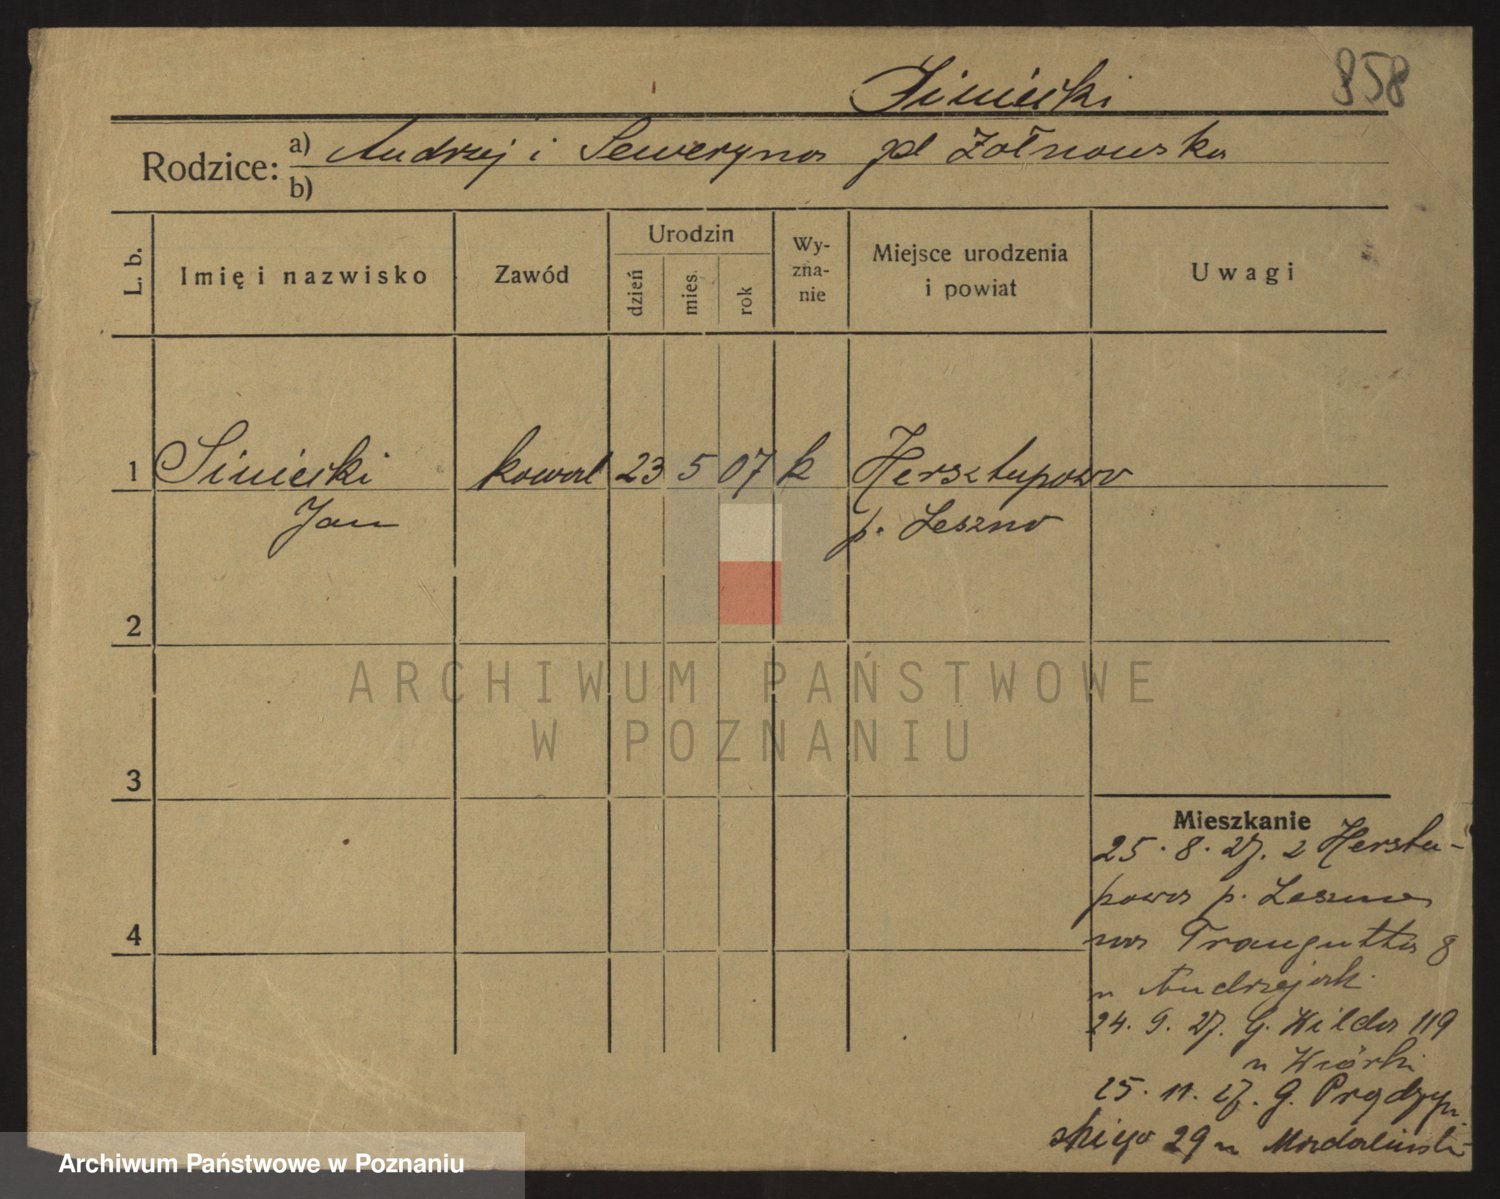 Siniecki 858
Rodzice: a) Andrzej i Seweryna zd Żołnowska
b)
L. b. Imię i nazwisko Zawód Urodzin dzień mies. rok Wy-zna-nie Miejsce urodzenia i powiat Uwagi
1 Siniecki kowal 23 5 07 k Hersztupowo
Jan p. Leszno
2
ARCHIWUM PAŃSTWOWE
W POZNANIU
3
Mieszkanie
25. 8. 27. z Herstu-
powa p. Leszno
na Traugutta 8
u Andrzejak
4
24. 9. 27. G. Wilda 119
u Wiórki
25. 11. 27. G. Prądzyń
skiego 29 u
Archiwum Państwowe w Poznaniu